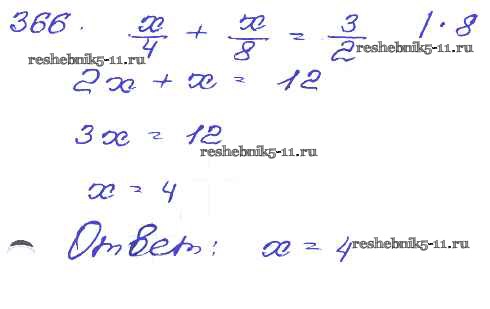 366. x/4 + x/8 = 3/2 | · 8
reshebnik5-11.ru
reshebnik5-11.ru
2x + x = 12
3x = 12
reshebnik5-11.ru
x = 4
Ответ: x = 4
reshebnik5-11.ru